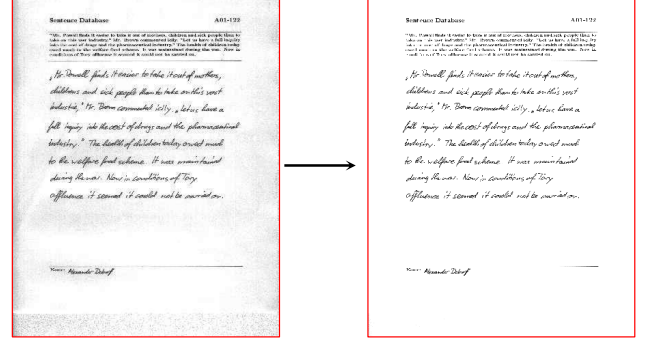 Sentence Database A01-122
"Mr. Powell finds it easier to take it out of mothers, children and sick people than to
take on this vast industry," Mr. Brown commented icily. "Let us have a full inquiry
into the cost of drugs and the pharmaceutical industry." The health of children today
owed much to the welfare food scheme. It was maintained during the war. Now in
conditions of Tory affluence it seemed it could not be carried on.
„Mr. Powell finds it easier to take it out of mothers,
children and sick people than to take on this vast
industrie," Mr. Brown commented icily. „Let us have a
full inquiry into the cost of drugs and the pharmaceutical
industry." The health of children today owed much
to the welfare food scheme. It was maintained
during the war. Now in conditions of Tory
affluence it seemed it could not be carried on.
Name:
Sentence Database A01-122
"Mr. Powell finds it easier to take it out of mothers, children and sick people than to
take on this vast industry," Mr. Brown commented icily. "Let us have a full inquiry
into the cost of drugs and the pharmaceutical industry." The health of children today
owed much to the welfare food scheme. It was maintained during the war. Now in
conditions of Tory affluence it seemed it could not be carried on.
„Mr. Powell finds it easier to take it out of mothers,
children and sick people than to take on this vast
industrie," Mr. Brown commented icily. „Let us have a
full inquiry into the cost of drugs and the pharmaceutical
industry." The health of children today owed much
to the welfare food scheme. It was maintained
during the war. Now in conditions of Tory
affluence it seemed it could not be carried on.
Name: